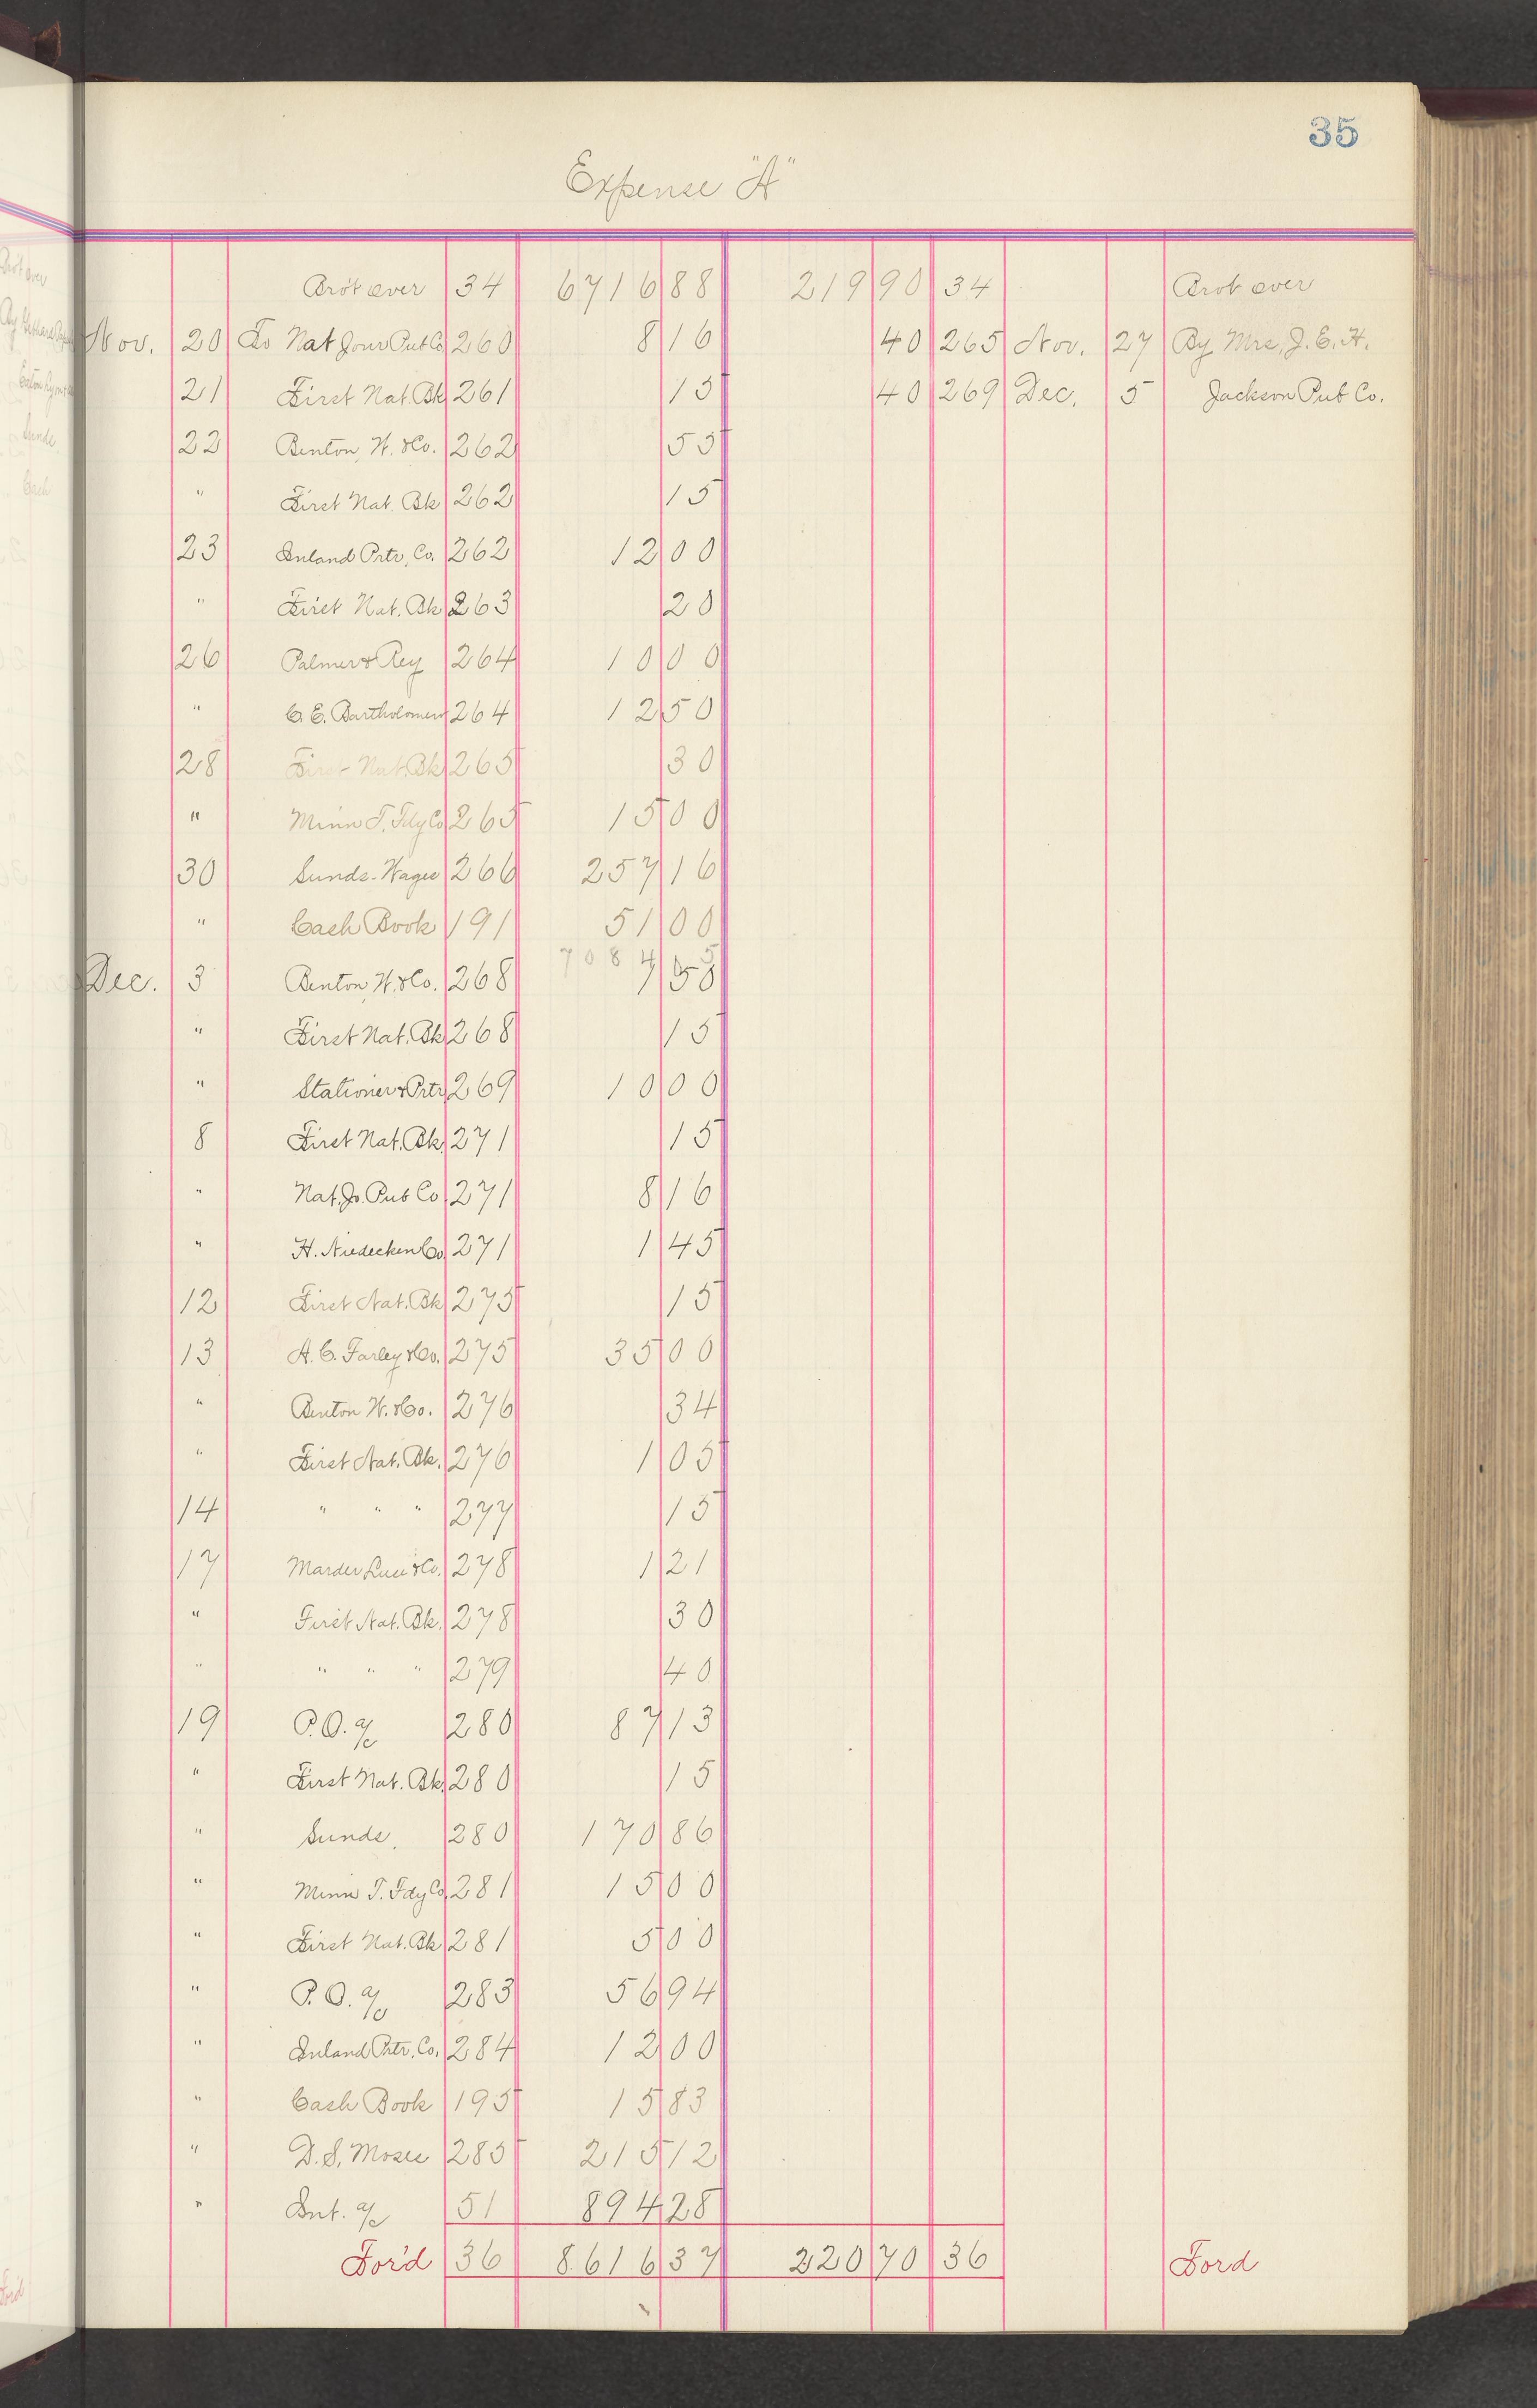 35
Expense "A"
Brot over 34 6716 88 219 90 34 Brot over
Nov. 20 To Nat Jour Pub Co 260 8 16 40 265 Nov. 27 By Mrs. J. E. H.
21 First Nat. Bk 261 15 40 269 Dec. 5 Jackson Pub Co.
22 Benton, W. & Co. 262 55
" First Nat. Bk 262 15
23 Inland Prtr. Co. 262 12 00
" First Nat. Bk 263 20
26 Palmer & Rey 264 10 00
" C. E. Bartholomew 264 12 50
28 First Nat. Bk 265 30
" Minn T. Fdy Co 265 15 00
30 Sunds. Wages 266 257 16
" Cash Book 191 51 00
7084
Dec. 3 Benton, W. & Co. 268
" First Nat. Bk 268 15
" Stationer & Prtr 269 10 00
8 First Nat. Bk 271 15
" Nat. Jr. Pub Co 271 8 16
" H. Niedecken Co 271 1 45
12 First Nat. Bk 275 15
13 A. C. Farley & Co. 275 35 00
" Benton W. & Co. 276 34
" First Nat. Bk. 276 1 05
14 " " " 277 15
17 Marder Luse & Co. 278 1 21
" First Nat. Bk. 278 30
" " " " 279 40
19 P. O. a/c 280 87 13
" First Nat. Bk 280 15
" Sunds. 280 170 86
" Minn T. Fdy Co 281 15 00
" First Nat. Bk 281 5 00
" P. O. a/c 283 56 94
" Inland Prtr. Co. 284 12 00
" Cash Book 195 15 83
" D. S. Moses 285 215 12
" Int. a/c 51 894 28
For'd 36 8616 37 220 70 36 Ford